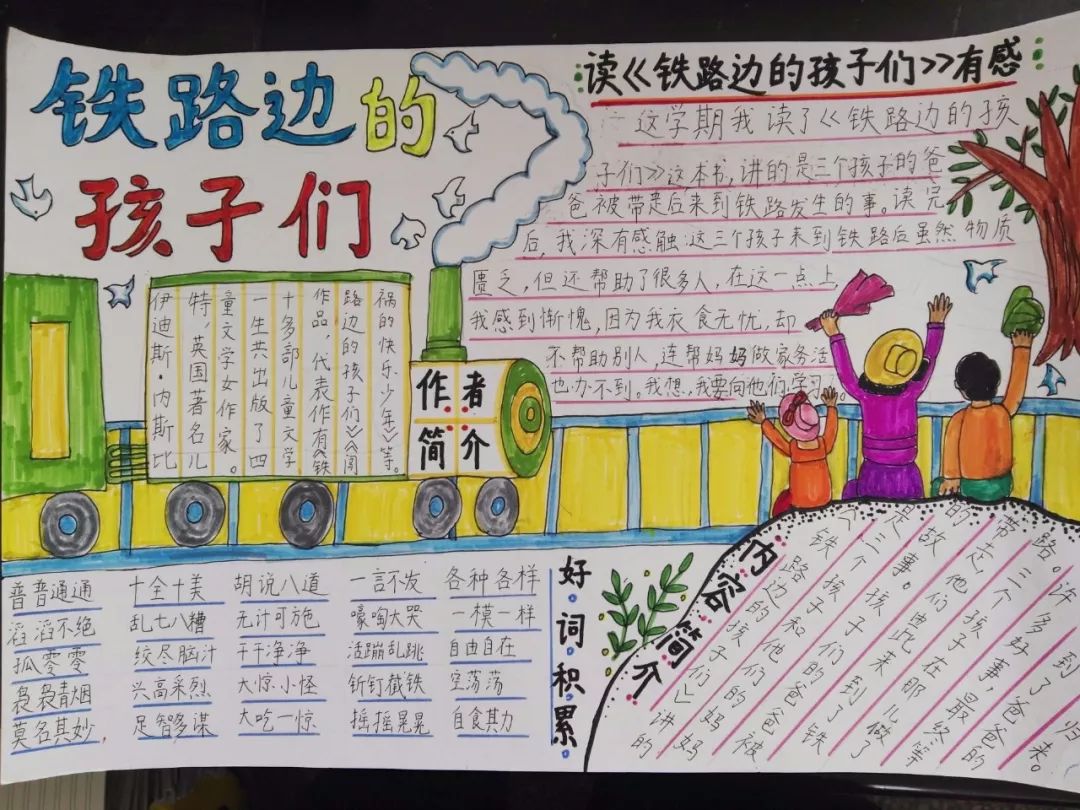 铁路边的
孩子们
读《铁路边的孩子们》有感
这学期我读了《铁路边的孩
子们》这本书,讲的是三个孩子的爸
爸被带走后来到铁路发生的事。读完
后,我深有感触:这三个孩子来到铁路后虽然物质
匮乏,但还帮助了很多人,在这一点上,
我感到惭愧,因为我衣食无忧,却
不帮助别人,连帮妈妈做家务活
也办不到。我想,我要向他们学习。
作者
简介
伊迪斯·内斯比
特,英国著名儿
童文学女作家。
一生共出版了四
十多部儿童文学
作品,代表作有《铁
路边的孩子们》《闯
祸的快乐少年》等。
好词积累
普普通通 十全十美 胡说八道 一言不发 各种各样
滔滔不绝 乱七八糟 无计可施 嚎啕大哭 一模一样
孤零零 绞尽脑汁 干干净净 活蹦乱跳 自由自在
袅袅青烟 兴高采烈 大惊小怪 斩钉截铁 空荡荡
莫名其妙 足智多谋 大吃一惊 摇摇晃晃 自食其力
内容简介
《铁路边的孩子们》讲的
是三个孩子和他们的妈妈
的故事。孩子们的爸爸被
带走,他们由此来到了铁
路。三个孩子在那儿做了
许多好事,最终等
到了爸爸的
归来。